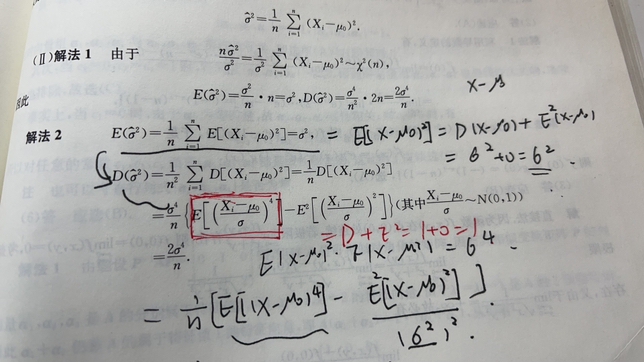 σ̂² = 1/n Σᵢ₌₁ⁿ (Xᵢ−μ₀)².
(Ⅱ) 解法 1 由于 nσ̂²/σ² = 1/σ² Σᵢ₌₁ⁿ (Xᵢ−μ₀)² ~ χ²(n),
因此 E(σ̂²) = σ²/n · n = σ², D(σ̂²) = σ⁴/n² · 2n = 2σ⁴/n.
x−μ
解法 2 E(σ̂²) = 1/n Σᵢ₌₁ⁿ E[(Xᵢ−μ₀)²] = σ², = E[(x−μ₀)²] = D(x−μ₀) + E²(x−μ₀)
= 6²+0 = 6²
D(σ̂²) = 1/n² Σᵢ₌₁ⁿ D[(Xᵢ−μ₀)²] = 1/n D[(Xᵢ−μ₀)²]
= σ⁴/n {E[((Xᵢ−μ₀)/σ)⁴] − E²[((Xᵢ−μ₀)/σ)²]} (其中 (Xᵢ−μ₀)/σ ~ N(0,1))
= D+E² = 1+0 = 1
= 2σ⁴/n.
E(x−μ₀)² · E(x−μ₀)² = 6⁴.
= 1/n [E[(x−μ₀)⁴] − E²[(x−μ₀)²]].
(6²)².